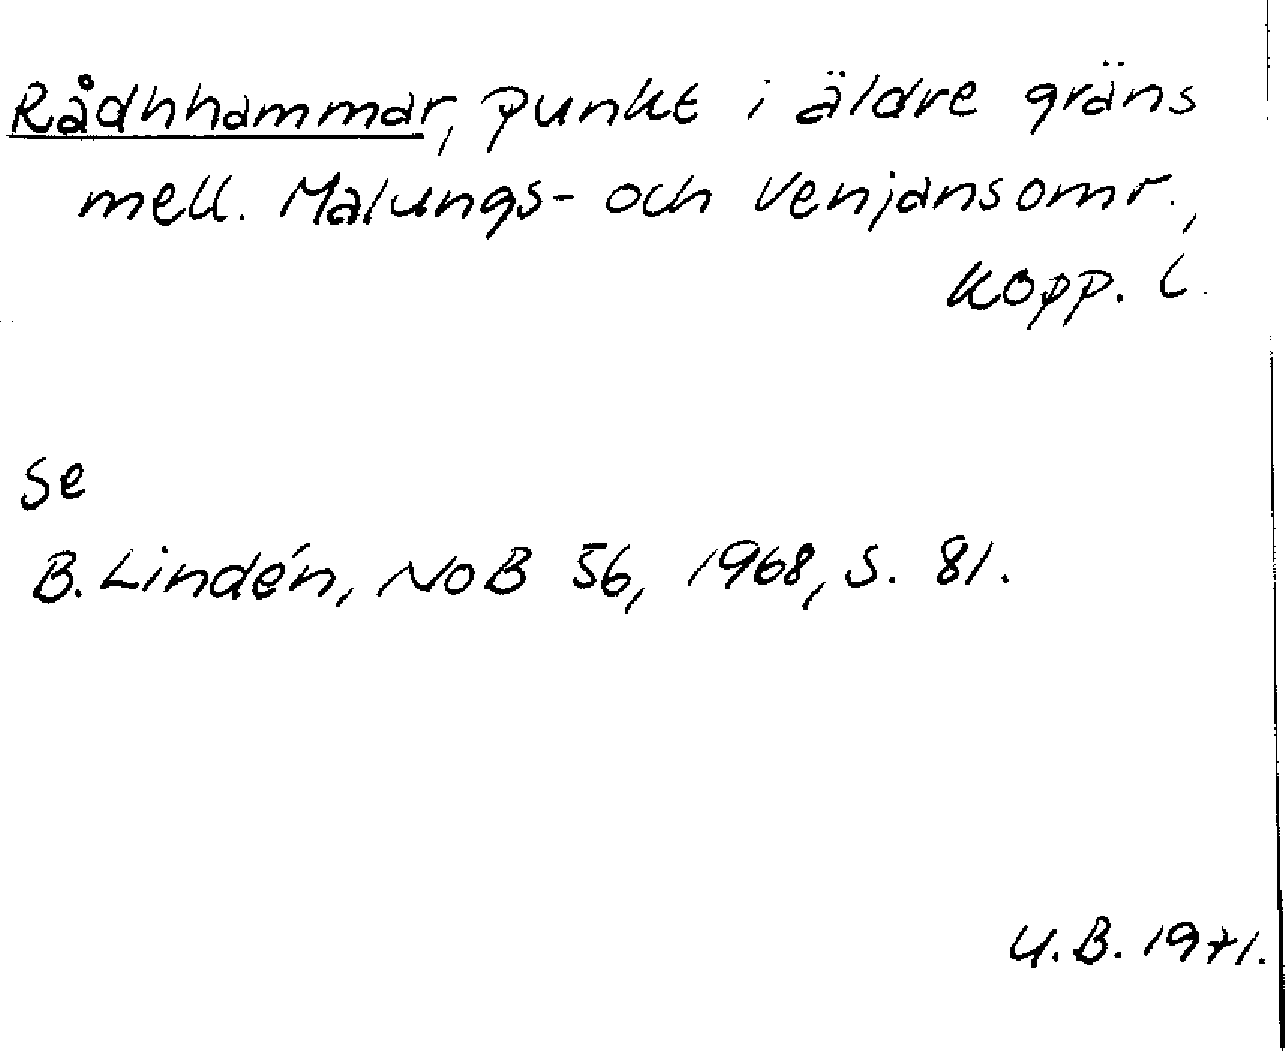 Rådhhammar, punkt i äldre gräns
mell. Malungs- och Venjansomr.,
Kopp. l.
se
B. Lindén, NoB 56, 1968, s. 81.
U.B. 1971.